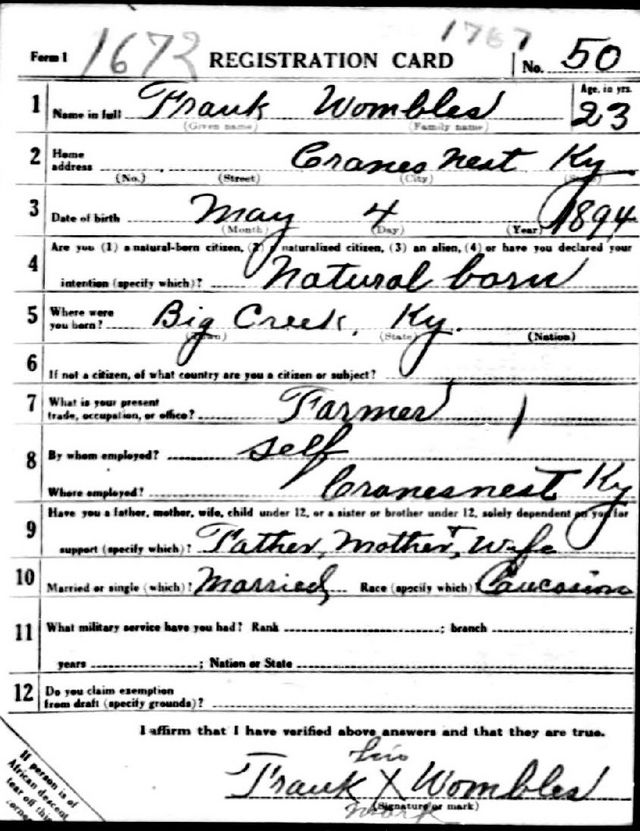 Form 1 1673 REGISTRATION CARD 1767 No. 50
1 Name in full Frank Wombles Age, in yrs. 23
(Given name) (Family name)
2 Home address Cranes Nest Ky
(No.) (Street) (City) (State)
3 Date of birth May 4 1894
(Month) (Day) (Year)
4 Are you (1) a natural-born citizen, (2) a naturalized citizen, (3) an alien, (4) or have you declared your
intention (specify which)? Natural born
5 Where were you born? Big Creek, Ky.
(Town) (State) (Nation)
6 If not a citizen, of what country are you a citizen or subject?
7 What is your present trade, occupation, or office? Farmer
8 By whom employed? self
Where employed? Cranesnest Ky
9 Have you a father, mother, wife, child under 12, or a sister or brother under 12, solely dependent on you for
support (specify which)? Father, Mother, + Wife
10 Married or single (which)? Married Race (specify which)? Caucasion
11 What military service have you had? Rank ; branch ;
years ; Nation or State
12 Do you claim exemption from draft (specify grounds)?
I affirm that I have verified above answers and that they are true.
his
Frank X Wombles
(Signature or mark)
mark
If person is of
African descent
tear off this
corner.